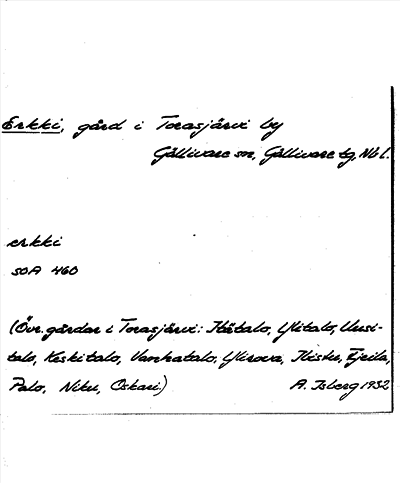 Erkki, gård i Torasjärvi by
Gällivare sn, Gällivare tg, Nb l.
erkki
SOA 460
(Övr. gårdar i Torasjärvi: Itätalo, Ylitalo, Uusi-
talo, Keskitalo, Vanhatalo, Ylirova, Iisku, Ejeila,
Palo, Niku, Oskari)
A. Isberg 1932